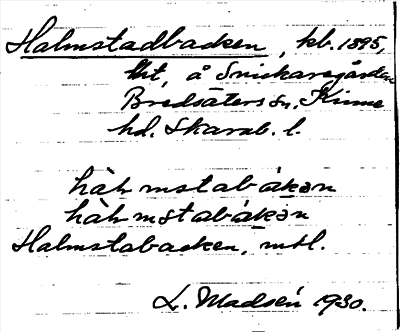 Halmstadbacken, kb. 1895,
lht, å Snickaregården
Bredsäters sn, Kinne
hd. Skarab. l.
hàlmstabákən
hàlmstabákən
Halmstabacken, mtl.
L. Madsén 1930.